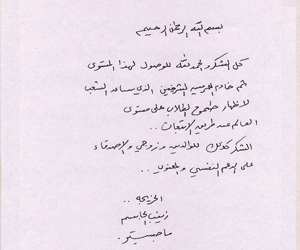 بسم الله الرحمن الرحيم
كل الشكر والحمد لله للوصول لهذا المستوى
ثم خادم الحرمين الشريفين الذي ساعد الشعب
لاظهار طموح الطلاب على مستوى
العالم عند طريق الابتعاث ..
الشكر كذلك للوالدين وزوجي والاصدقاء
على الدعم النفسي والمعنوي ..
الخريجه ..
زينب الجاسم
ماجستير